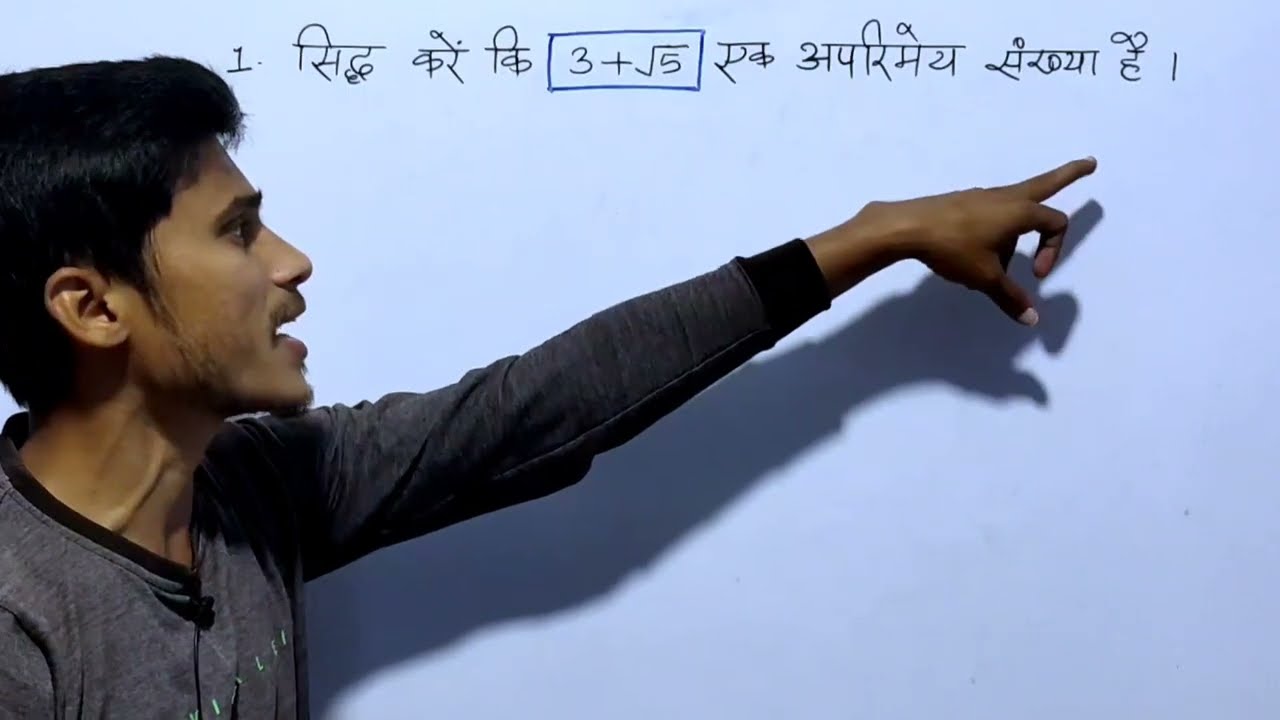 1. सिद्ध करें कि 3+√5 एक अपरिमेय संख्या है ।